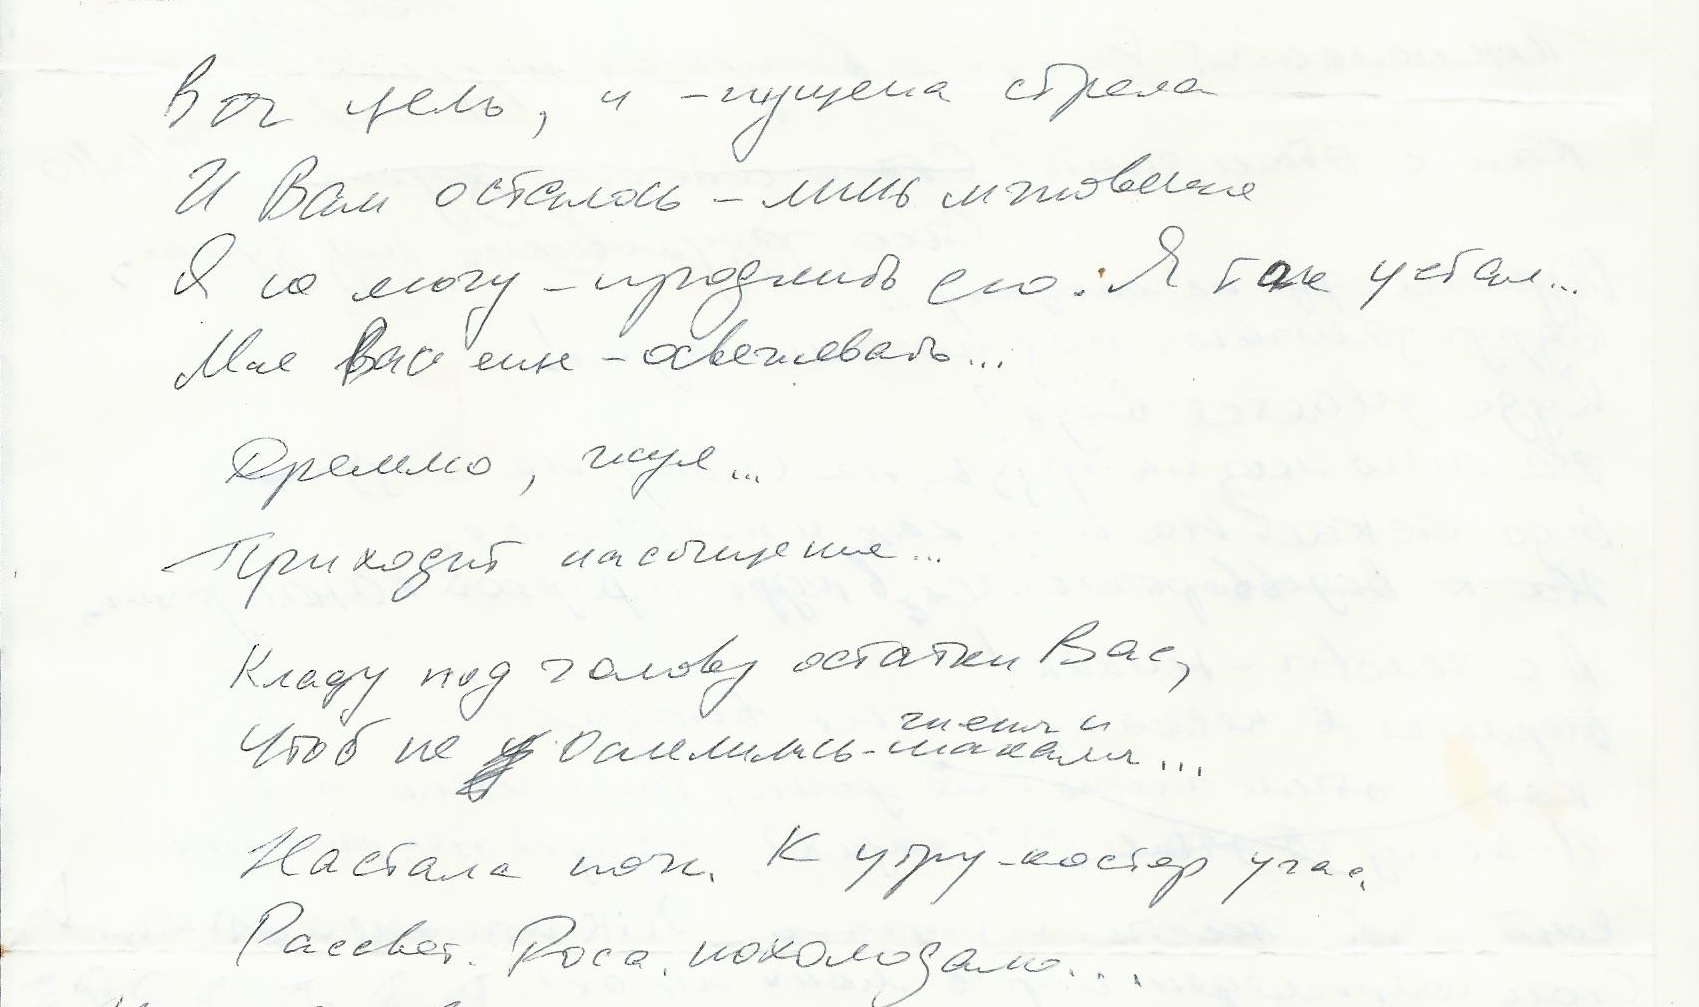 Вот цель, и - пущена стрела
И Вам осталось - лишь мгновенье
Я не могу - продлить его: Я так устал...
Мне Вас еще - освежевать...
Дремлю, жуя...
Приходит насыщение...
Кладу под голову остатки Вас,
гиены и
Чтоб не осмелились - шакалы...
Настала ночь. К утру - костер угас.
Рассвет. Роса. похолодало...